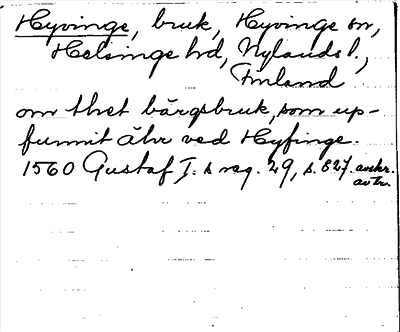 Hyvinge, bruk, Hyvinge sn,
Helsinge hd, Nylands l.,
Finland
om thet bärgsbruk, som up-
funnit ähr ved Hyfinge.
1560 Gustaf I. s reg. 29, s. 827. avskr.
av tr.